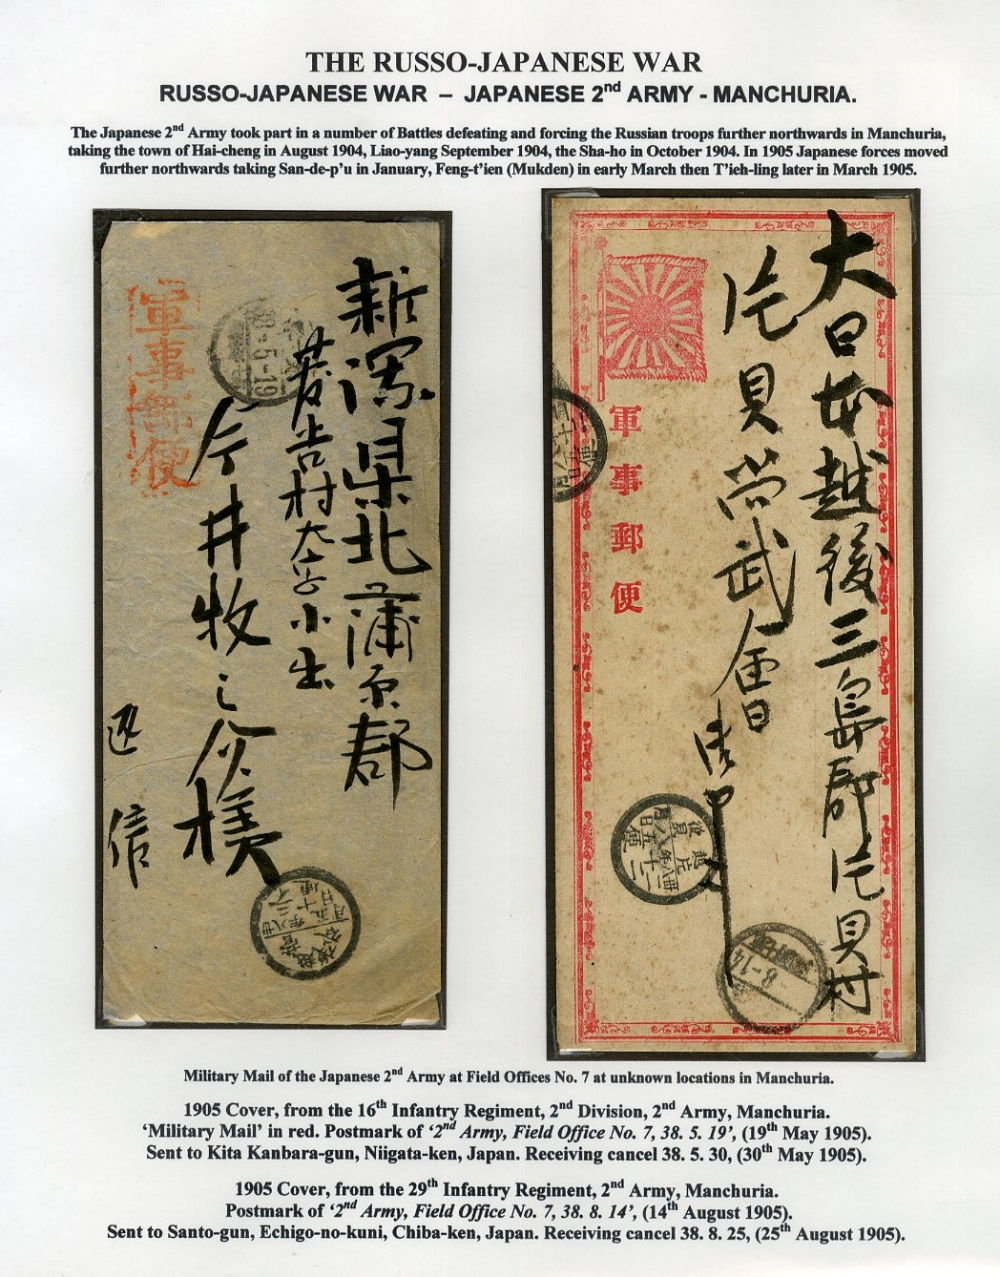 THE RUSSO-JAPANESE WAR
RUSSO-JAPANESE WAR – JAPANESE 2nd ARMY - MANCHURIA.
The Japanese 2nd Army took part in a number of Battles defeating and forcing the Russian troops further northwards in Manchuria,
taking the town of Hai-cheng in August 1904, Liao-yang September 1904, the Sha-ho in October 1904. In 1905 Japanese forces moved
further northwards taking San-de-p'u in January, Feng-t'ien (Mukden) in early March then T'ieh-ling later in March 1905.
新潟県北蒲原郡
村大字小出
今井牧之介様
軍事郵便
5-19
信
大日本越後三島郡片貝村
片貝尚武会
軍事郵便
8-14
Military Mail of the Japanese 2nd Army at Field Offices No. 7 at unknown locations in Manchuria.
1905 Cover, from the 16th Infantry Regiment, 2nd Division, 2nd Army, Manchuria.
‘Military Mail’ in red. Postmark of ‘2nd Army, Field Office No. 7, 38. 5. 19’, (19th May 1905).
Sent to Kita Kanbara-gun, Niigata-ken, Japan. Receiving cancel 38. 5. 30, (30th May 1905).
1905 Cover, from the 29th Infantry Regiment, 2nd Army, Manchuria.
Postmark of ‘2nd Army, Field Office No. 7, 38. 8. 14’, (14th August 1905).
Sent to Santo-gun, Echigo-no-kuni, Chiba-ken, Japan. Receiving cancel 38. 8. 25, (25th August 1905).